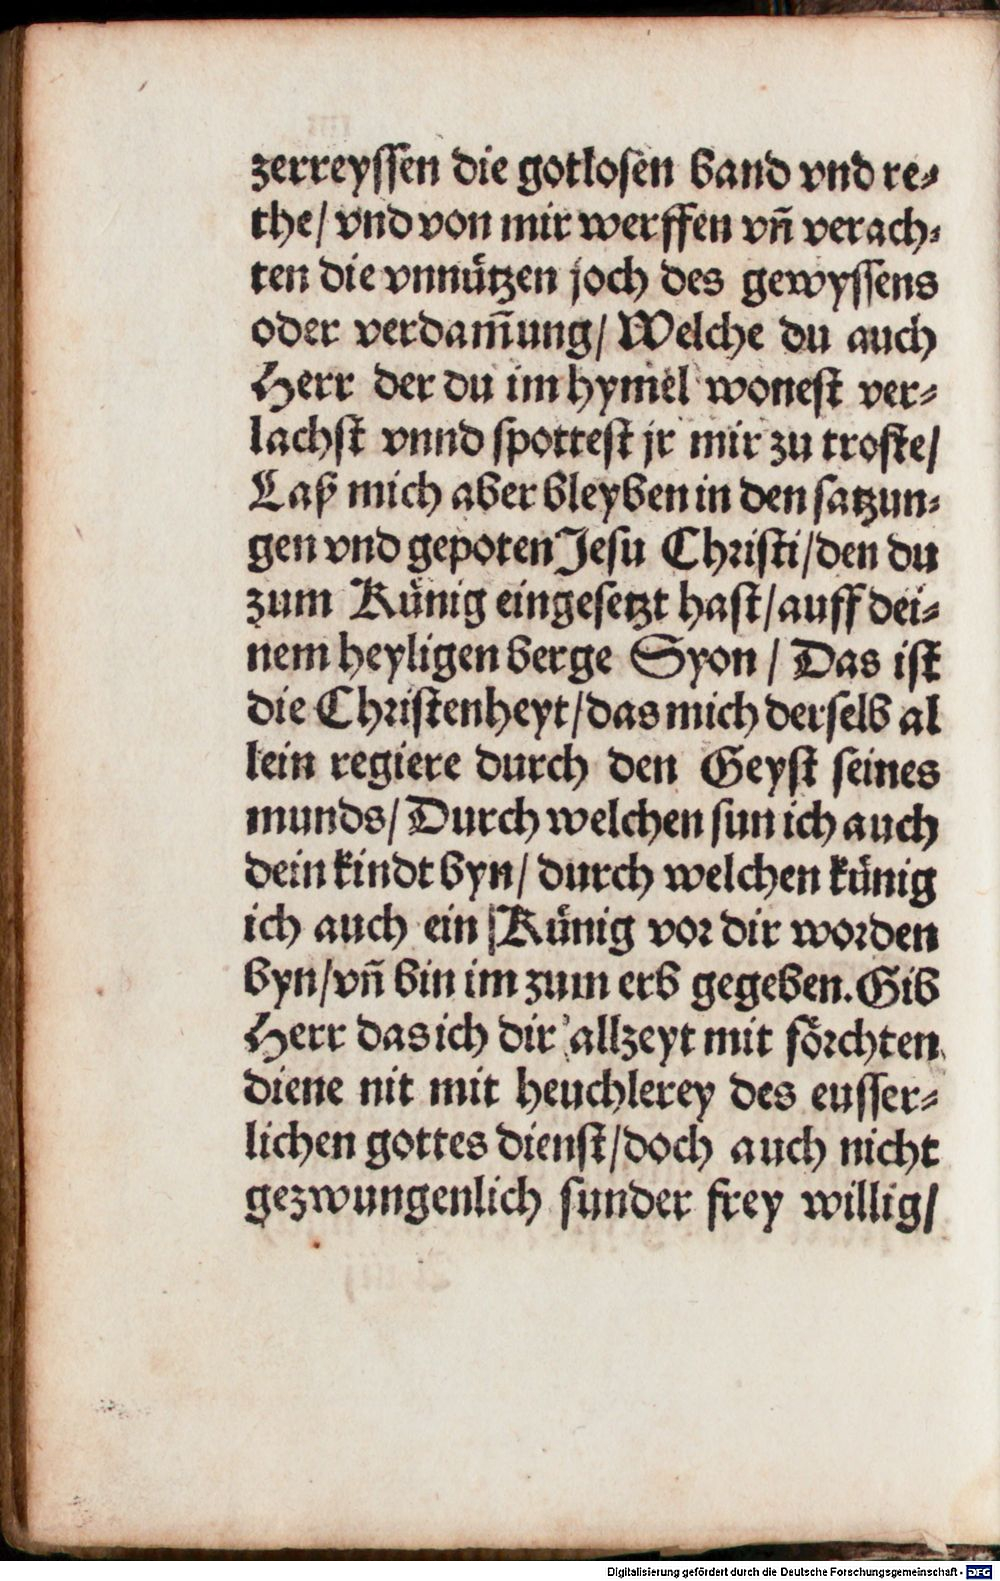 zerreyssen die gotlosen band vnd re⸗
the/ vnd von mir werffen vñ verach⸗
ten die vnnützen joch des gewyssens
oder verdam̄ung/ Welche du auch
Herr der du im hymel wonest ver⸗
lachst vnnd spottest jr mir zu troste/
Laß mich aber bleyben in den satzun⸗
gen vnd gepoten Jesu Christi/ den du
zum Künig eingesetzt hast/ auff dei⸗
nem heyligen berge Syon / Das ist
die Christenheyt/ das mich derselb al
lein regiere durch den Geyst seines
munds/ Durch welchen sun ich auch
dein kindt byn/ durch welchen künig
ich auch ein Künig vor dir worden
byn/ vñ bin im zum erb gegeben. Gib
Herr das ich dir allzeyt mit förchten
diene nit mit heuchlerey des eusser⸗
lichen gottes dienst/ doch auch nicht
gezwungenlich sunder frey willig/
Digitalisierung gefördert durch die Deutsche Forschungsgemeinschaft - DFG